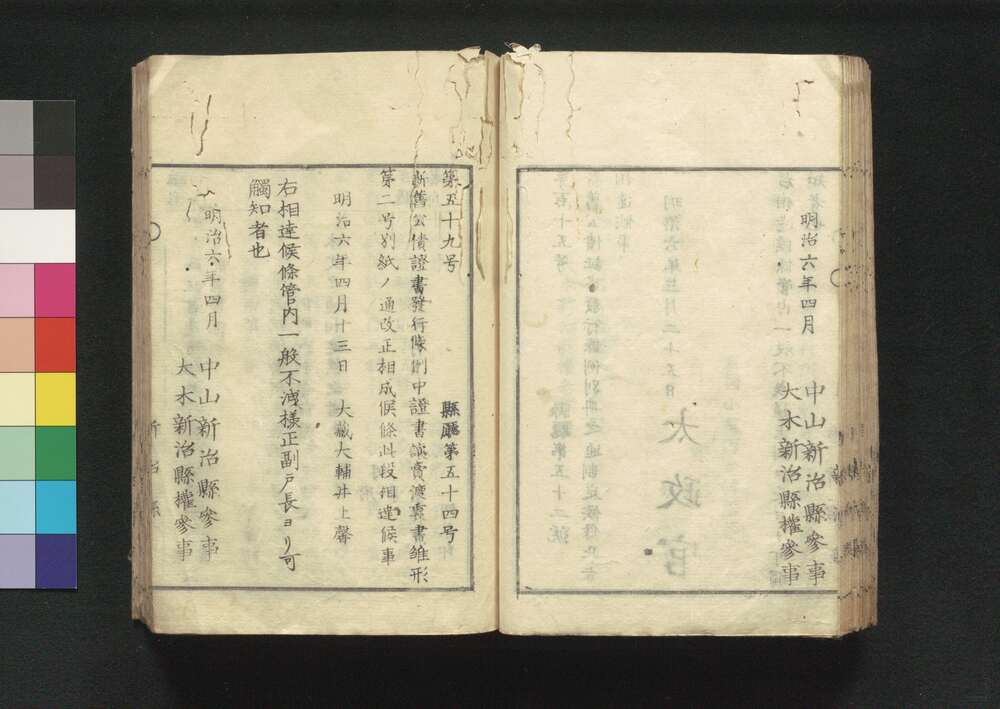 明治六年四月
中山新治縣參事
大木新治縣權參事
第五十九号
縣廳第五十四号
新舊公債證書發行條例中證書讓賣渡裏書雛形
第二号別紙ノ通改正相成候條此段相達候事
明治六年四月十三日　大藏大輔井上馨
右相達候條管内一般不洩樣正副戸長ヨリ可
觸知者也
明治六年四月
中山新治縣參事
大木新治縣權參事